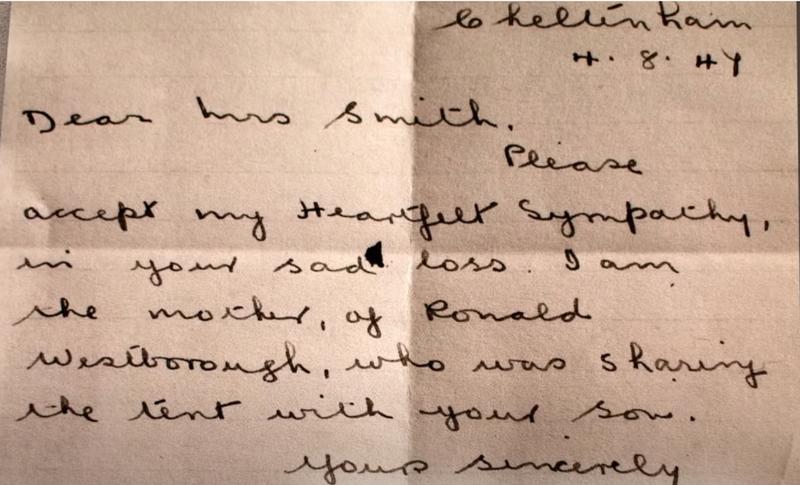 Cheltenham
4. 8. 47
Dear Mrs Smith.
Please
accept my Heartfelt Sympathy,
in your sad loss. I am
the mother, of Ronald
Westborough, who was sharing
the tent with your son.
Yours sincerely